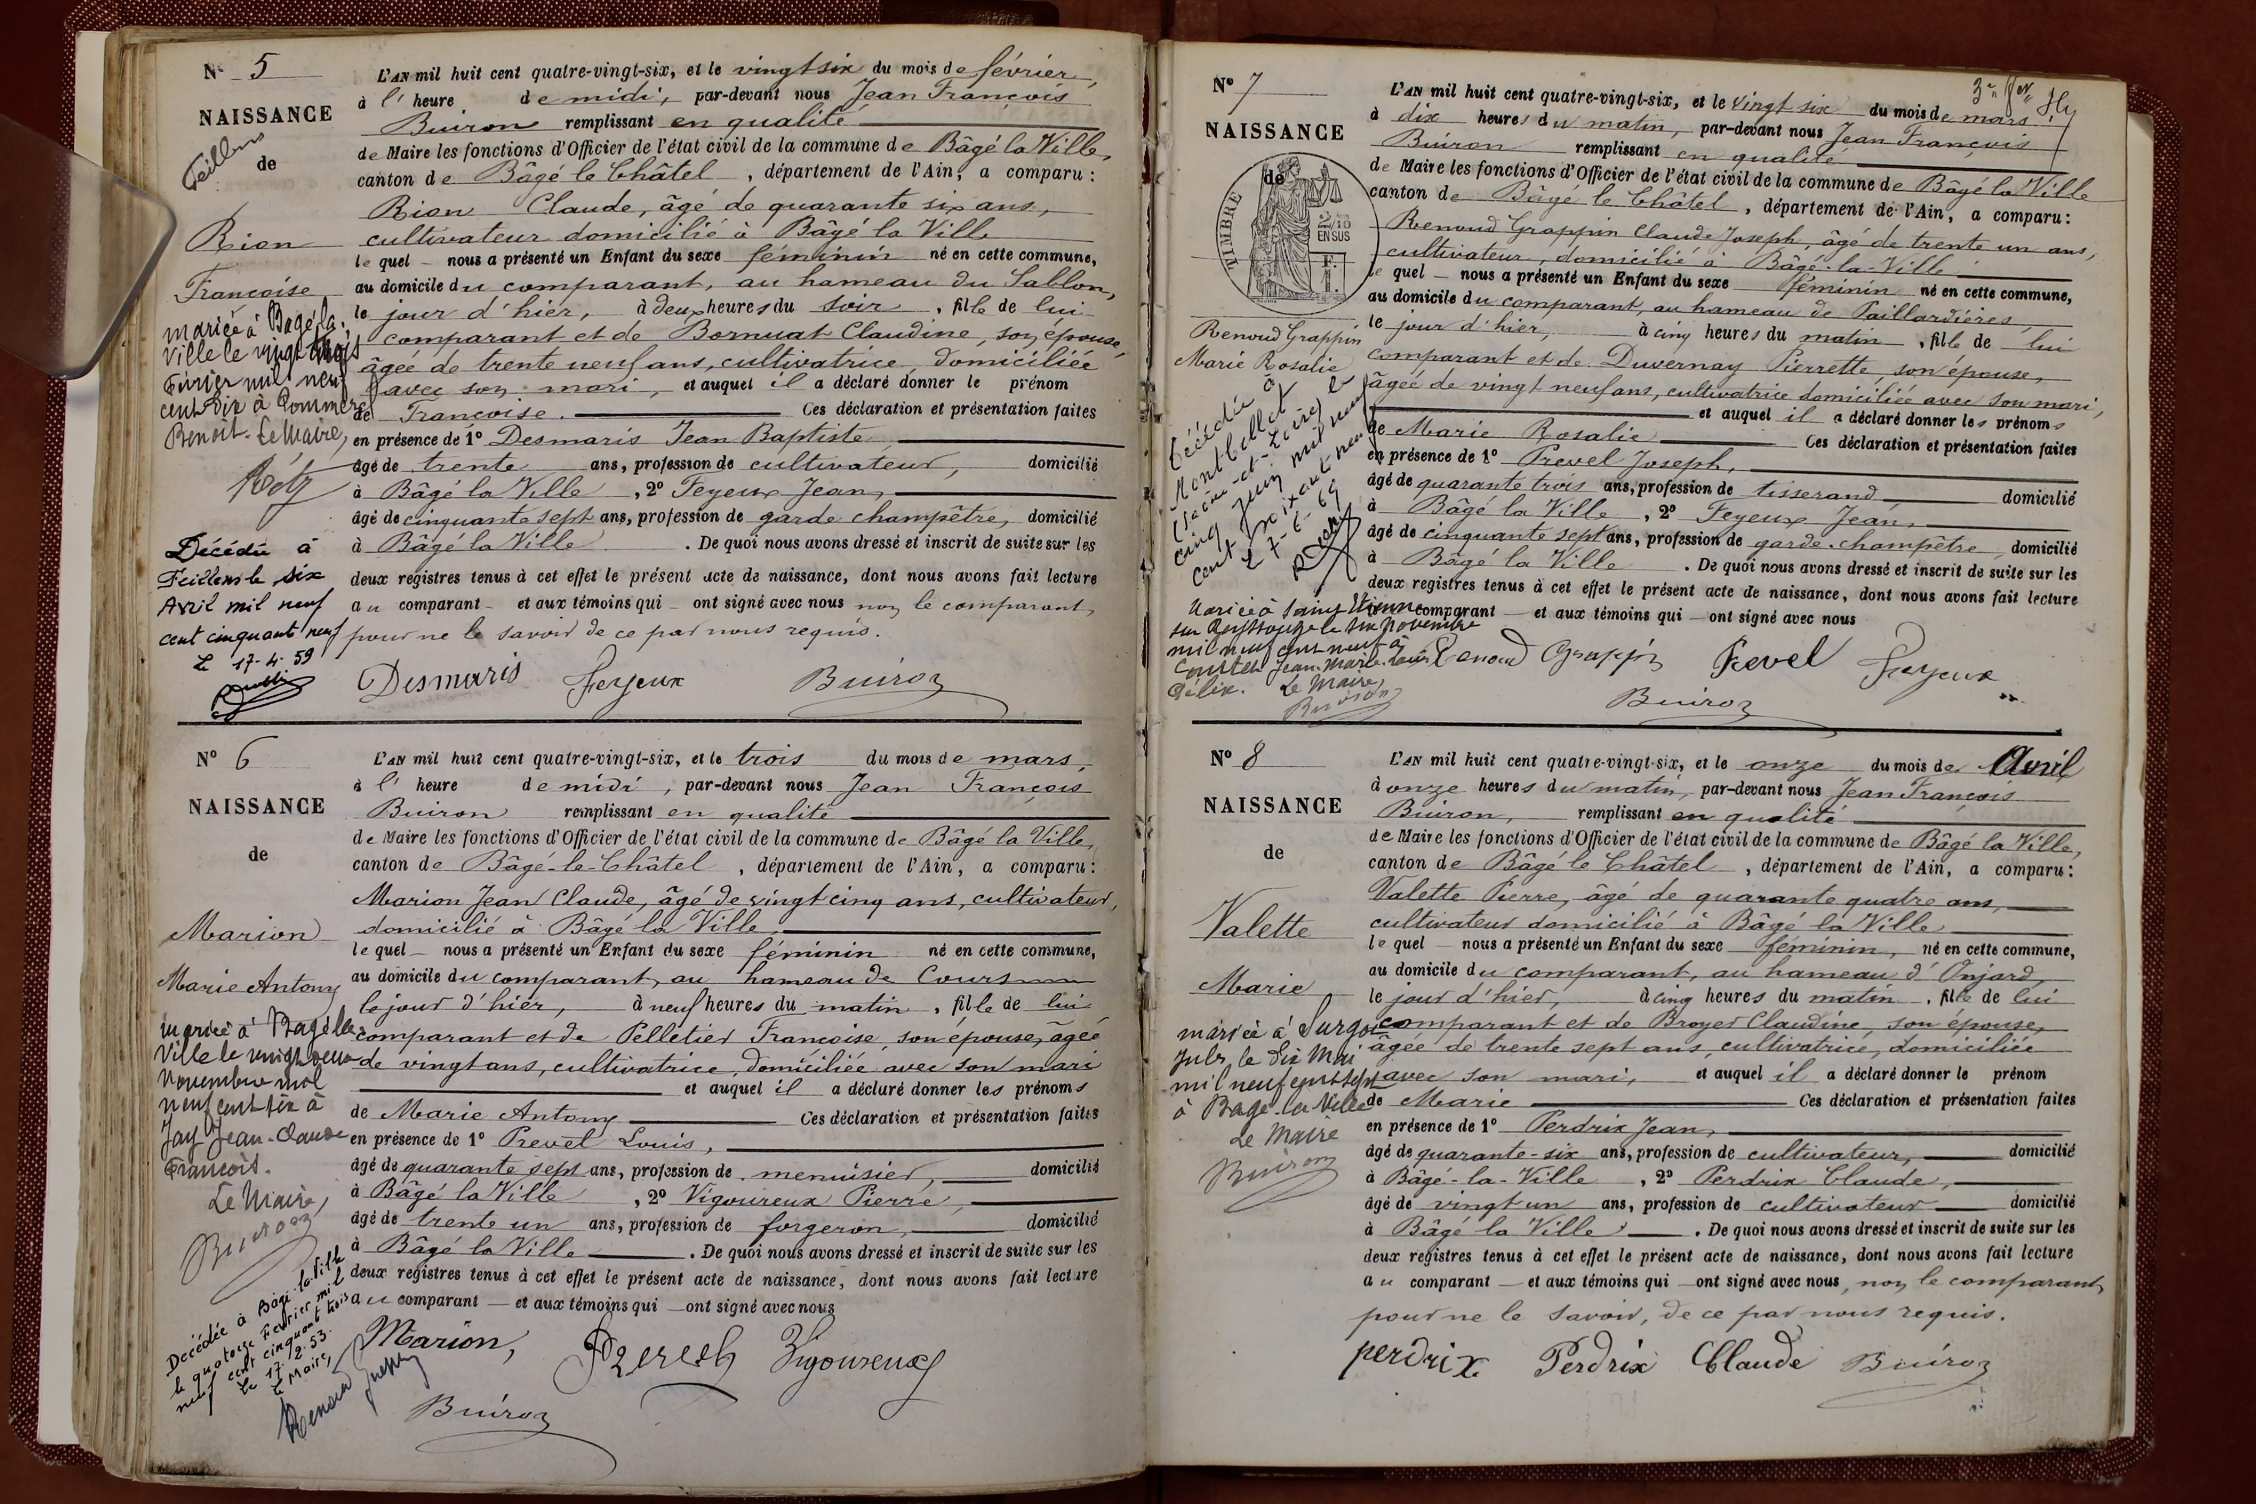 N° 5
NAISSANCE
Feillens
de
Rion
Françoise
mariée à Bâgé la
Ville le vingt trois
Février mil neuf
cent dix à Commerç
Benoit. Le Maire,
Décédée à
Feillens le six
Avril mil neuf
cent cinquant neuf
Le 17-4-59
L'AN mil huit cent quatre-vingt-six, et le vingt six du mois de février,
à l' heure de midi, par-devant nous Jean François
Buiron remplissant en qualité
de Maire les fonctions d'Officier de l'état civil de la commune de Bâgé la Ville,
canton de Bâgé le Châtel, département de l'Ain, a comparu :
Rion Claude, âgé de quarante six ans,
cultivateur domicilié à Bâgé la Ville
lequel nous a présenté un Enfant du sexe féminin né en cette commune,
au domicile du comparant, au hameau du Sablon,
le jour d'hier, à deux heures du soir, fille de lui
comparant et de Bornuat Claudine, son épouse,
âgée de trente neuf ans, cultivatrice, domiciliée
avec son mari, et auquel il a déclaré donner le prénom
de Françoise. Ces déclaration et présentation faites
en présence de 1° Desmaris Jean Baptiste
âgé de trente ans, profession de cultivateur, domicilié
à Bâgé la Ville, 2° Feyeux Jean,
âgé de cinquante sept ans, profession de garde champêtre, domicilié
à Bâgé la Ville. De quoi nous avons dressé et inscrit de suite sur les
deux registres tenus à cet effet le présent acte de naissance, dont nous avons fait lecture
au comparant et aux témoins qui ont signé avec nous non le comparant,
pour ne le savoir de ce par nous requis.
Desmaris Feyeux Buiron
N° 6
NAISSANCE
de
Marion
Marie Antony
mariée à Bagé la
Ville le vingt deux
Novembre mil
neuf cent six à
Jay Jean-Claude
François.
Le Maire,
Buiron
Décédée à Bâgé-la-Ville
le quatorze Février mil
neuf cent cinquant trois
Le 17.2.53.
Le Maire,
L'AN mil huit cent quatre-vingt-six, et le trois du mois de mars,
à l' heure de midi, par-devant nous Jean François
Buiron remplissant en qualité
de Maire les fonctions d'Officier de l'état civil de la commune de Bâgé la Ville,
canton de Bâgé-le-Châtel, département de l'Ain, a comparu :
Marion Jean Claude, âgé de vingt cinq ans, cultivateur,
domicilié à Bâgé la Ville,
lequel nous a présenté un Enfant du sexe féminin né en cette commune,
au domicile du comparant, au hameau de Cours
le jour d'hier, à neuf heures du matin, fille de lui
comparant et de Pelletier Françoise, son épouse, âgée
de vingt ans, cultivatrice, domiciliée avec son mari
et auquel il a déclaré donner les prénoms
de Marie Antony Ces déclaration et présentation faites
en présence de 1° Prevel Louis,
âgé de quarante sept ans, profession de menuisier, domicilié
à Bâgé la Ville, 2° Vigoureux Pierre,
âgé de trente un ans, profession de forgeron, domicilié
à Bâgé la Ville. De quoi nous avons dressé et inscrit de suite sur les
deux registres tenus à cet effet le présent acte de naissance, dont nous avons fait lecture
au comparant et aux témoins qui ont signé avec nous
Marion, Vigoureux
Buiron
N° 7
NAISSANCE
de
TIMBRE
2/10
EN SUS
F.
Renoud Grappin
Marie Rosalie
Décédée à
Montbellet
(Saône-et-Loire) le
cinq Juin mil neuf
cent soixante neuf
Le 7-6-69
Mariée à Saint Etienne
sur Reyssouze le six Novembre
mil neuf cent neuf à
Jean-Marie-Louis
Félix. Le Maire,
Buiron
L'AN mil huit cent quatre-vingt-six, et le vingt six du mois de mars
à dix heures du matin, par-devant nous Jean François
Buiron remplissant en qualité
de Maire les fonctions d'Officier de l'état civil de la commune de Bâgé la Ville
canton de Bâgé le Châtel, département de l'Ain, a comparu :
Renoud Grappin Claude Joseph, âgé de trente un ans,
cultivateur, domicilié à Bâgé-la-Ville
lequel nous a présenté un Enfant du sexe féminin né en cette commune,
au domicile du comparant, au hameau de Paillardières
le jour d'hier, à cinq heures du matin, fille de lui
comparant et de Duvernay Pierrette, son épouse,
âgée de vingt neuf ans, cultivatrice domiciliée avec son mari,
et auquel il a déclaré donner les prénoms
de Marie Rosalie Ces déclaration et présentation faites
en présence de 1° Prevel Joseph,
âgé de quarante trois ans, profession de tisserand domicilié
à Bâgé la Ville, 2° Feyeux Jean,
âgé de cinquante sept ans, profession de garde-champêtre, domicilié
à Bâgé la Ville. De quoi nous avons dressé et inscrit de suite sur les
deux registres tenus à cet effet le présent acte de naissance, dont nous avons fait lecture
comparant et aux témoins qui ont signé avec nous
Renoud Grappin Prevel Feyeux
Buiron
N° 8
NAISSANCE
de
Valette
Marie
mariée à
le dix Mai
mil neuf cent sept
à Bagé-la-Ville
Le Maire
Buiron
L'AN mil huit cent quatre-vingt-six, et le onze du mois de Avril
à onze heures du matin, par-devant nous Jean François
Buiron, remplissant en qualité
de Maire les fonctions d'Officier de l'état civil de la commune de Bâgé la Ville,
canton de Bâgé le Châtel, département de l'Ain, a comparu :
Valette Pierre, âgé de quarante quatre ans,
cultivateur domicilié à Bâgé la Ville
lequel nous a présenté un Enfant du sexe féminin, né en cette commune,
au domicile du comparant, au hameau d'Onjard
le jour d'hier, à cinq heures du matin, fille de lui
comparant et de Broyer Claudine, son épouse,
âgée de trente sept ans, cultivatrice, domiciliée
avec son mari, et auquel il a déclaré donner le prénom
de Marie Ces déclaration et présentation faites
en présence de 1° Perdrix Jean,
âgé de quarante-six ans, profession de cultivateur, domicilié
à Bâgé-la-Ville, 2° Perdrix Claude,
âgé de vingt un ans, profession de cultivateur domicilié
à Bâgé la Ville. De quoi nous avons dressé et inscrit de suite sur les
deux registres tenus à cet effet le présent acte de naissance, dont nous avons fait lecture
au comparant et aux témoins qui ont signé avec nous, non le comparant,
pour ne le savoir, de ce par nous requis.
perdrix Perdrix Claude Buiron